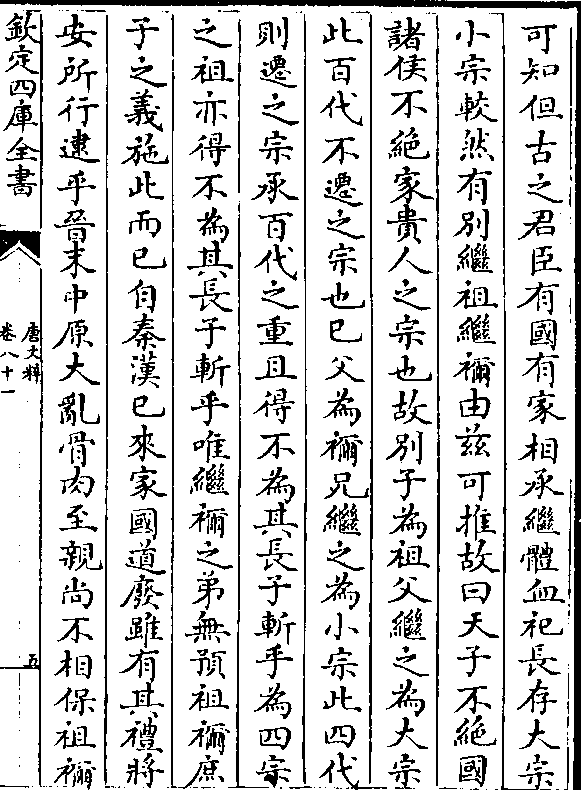 可知但古之君臣有國有家相承繼體血祀長存大宗
小宗較然有別繼祖繼禰由兹可推故曰天子不絶國
諸侯不絶家貴人之宗也故别子為祖父繼之為大宗
此百代不遷之宗也已父為禰兄繼之為小宗此四代
則遷之宗承百代之重且得不為其長子斬乎為四宗
之祖亦得不為其長子斬乎唯繼禰之弟無預祖禰庶
子之義施此而已自秦漢已來家國道廢雖有其禮將
安所行逮乎晉末中原大亂骨肉至親尚不相保祖禰
欽定四庫全書
唐文粹
卷八十一
五